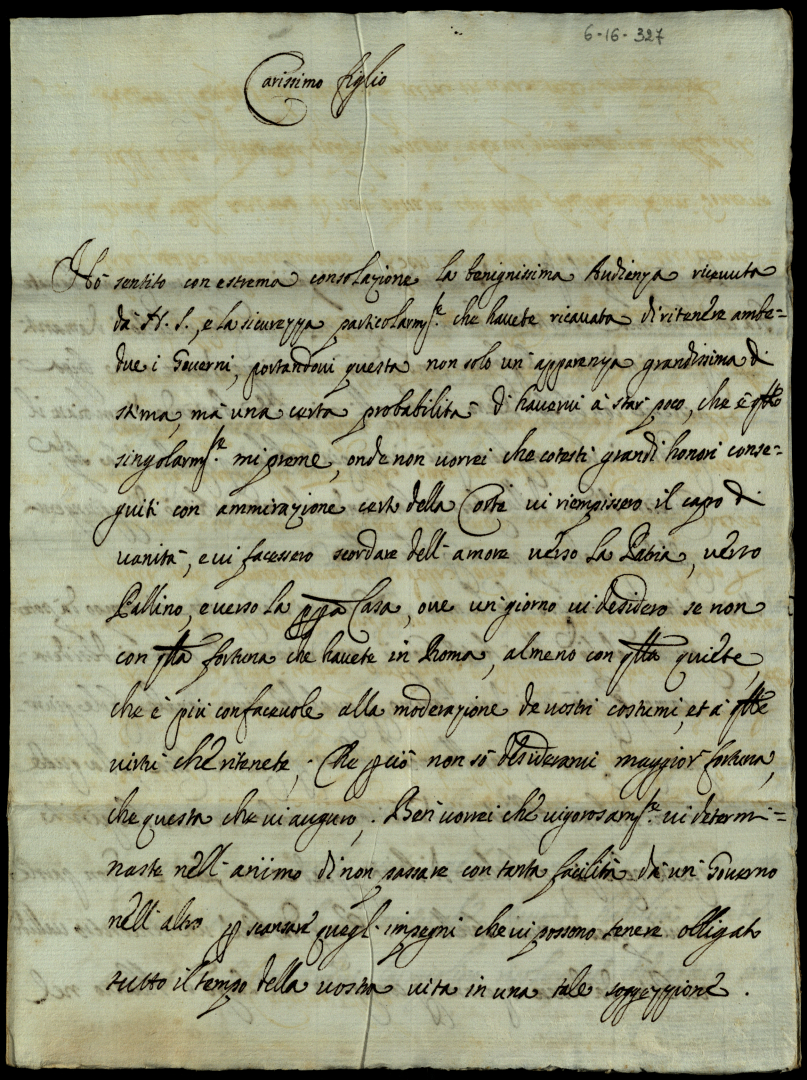 6-16-327
Carissimo figlio
Hò sentito con estrema consolazione la benignissima Audienza riceuuta
da N. S., e la sicurezza particolarmte. che hauete ricauata di ritenere ambe=
due i Gouerni, portandoui questa non solo un'apparenza grandissima di
stima, mà una certa probabilità di hauerui à star poco, che è qllo
singolarmte. mi preme, onde non uorrei che cotesti grandi honori conse=
guiti con ammirazione certo della Corte ui riempissero il capo di
uanità, e ui facessero scordare dell'amore uerso la Patria, uerso
Pallino, e uerso la ppa Casa, oue un giorno ui desidero se non
con qlla fortuna che hauete in Roma, almeno con qlla quiete,
che è più confaceuole alla moderazione de uostri costumi, et à qlle
uirtù che ritenete, Che pciò non sò desiderarui maggior fortuna,
che questa che ui auguro. Ben uorrei che uigorosamte. ui determi=
naste nell'animo di non passare con tanta facilità da un Gouerno
nell'altro p scansare quegl'impegni che ui possono tenere obligato
tutto il tempo della uostra uita in una tale soggezzione.